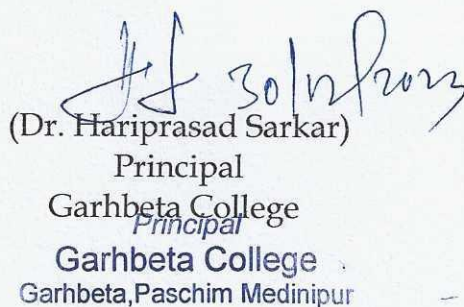 30/12/2023
(Dr. Hariprasad Sarkar)
Principal
Garhbeta College
Principal
Garhbeta College
Garhbeta,Paschim Medinipur